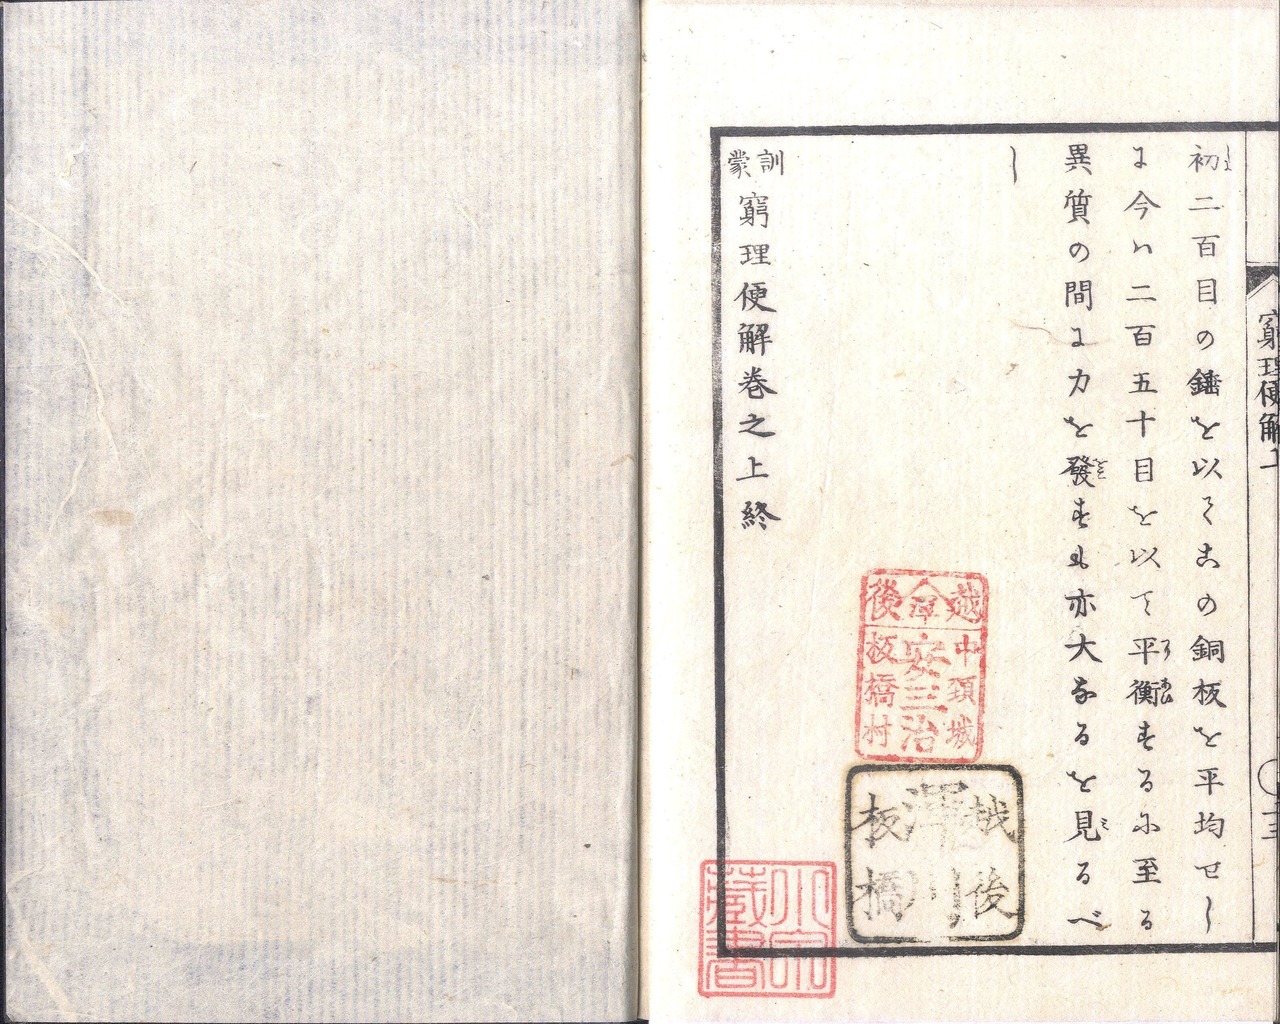 窮理便解上
初二百目の錘を以てこの銅板を平均せし
に今ハ二百五十目を以て平衡するに至る
異質の間に力を發するも亦大なるを見るべ
し
訓蒙窮理便解卷之上終
越後
中頚城
板橋村
安三治
越後
板橋
澤川
藏書